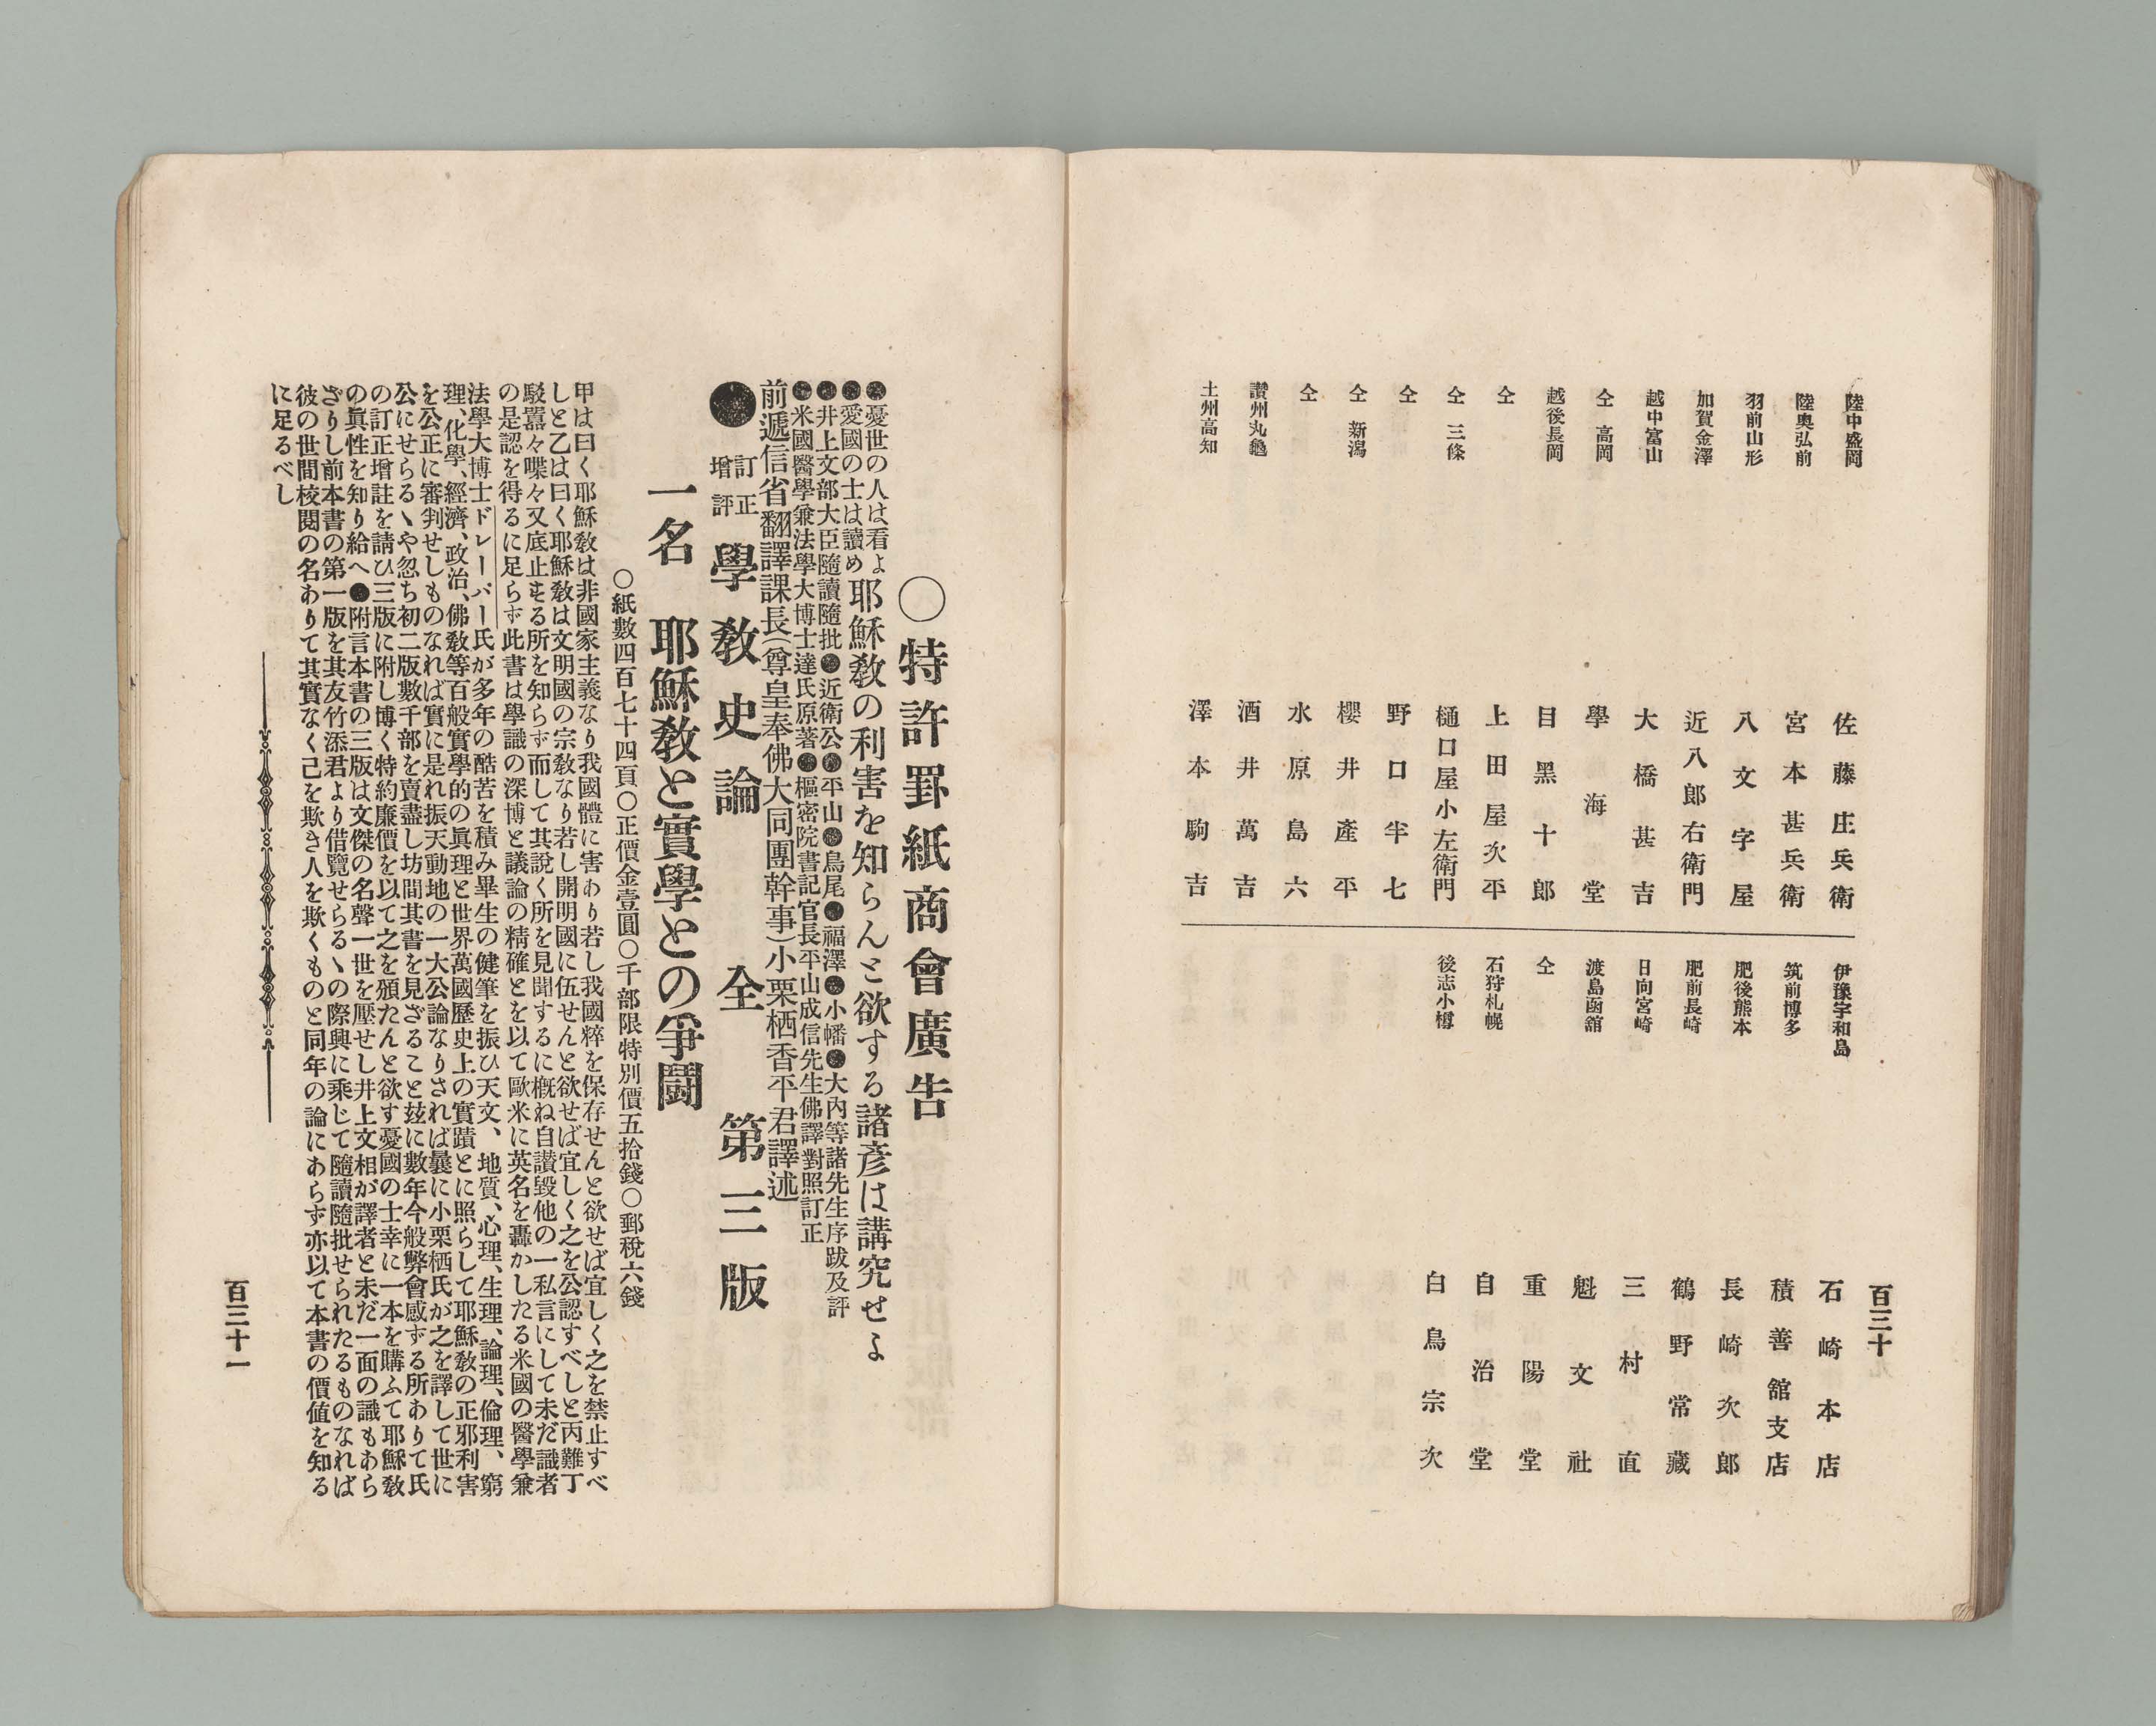 百三十
陸中盛岡　佐藤庄兵衛
陸奧弘前　宮本甚兵衛
羽前山形　八文字屋
加賀金澤　近八郎右衛門
越中富山　大橋甚吉
仝　高岡　學海堂
越後長岡　目黑十郎
仝　上田屋次平
仝　三條　樋口屋小左衛門
仝　野口半七
仝　新潟　櫻井產平
仝　水原島六
讚州丸龜　酒井萬吉
土州高知　澤本駒吉
伊豫宇和島　石崎本店
筑前博多　積善舘支店
肥後熊本　長崎次郎
肥前長崎　鶴野常藏
日向宮崎　三木村直
渡島函舘　魁文社
仝　重陽堂
石狩札幌　自治堂
後志小樽　白鳥宗次
○特許罫紙商會廣告
●憂世の人は看よ
●愛國の士は讀め
耶穌敎の利害を知らんと欲する諸彥は講究せよ
●井上文部大臣隨讀隨批●近衛公●平山●鳥尾●福澤●小幡●大內等諸先生序跋及評
●米國醫學兼法學大博士達氏原著●樞密院書記官長平山成信先生佛譯對照訂正
前遞信省翻譯課長(尊皇奉佛大同團幹事)小栗栖香平君譯述
●訂正增評　學敎史論　全　第三版
一名　耶穌敎と實學との爭鬪
○紙數四百七十四頁○正價金壹圓○千部限特別價五拾錢○郵稅六錢
甲は曰く耶穌敎は非國家主義なり我國體に害あり若し我國粹を保存せんと欲せば宜しく之を禁止すべ
しと乙は曰く耶穌敎は文明國の宗敎なり若し開明國に伍せんと欲せば宜しく之を公認すべしと丙難丁
駁囂々喋々又底止する所を知らず而して其說く所を見聞するに槪ね自讃毀他の一私言にして未だ識者
の是認を得るに足らず此書は學識の深博と議論の精確とを以て歐米に英名を轟かしたる米國の醫學兼
法學大博士ドレーバー氏が多年の酷苦を積み畢生の健筆を振ひ天文、地質、心理、生理、論理、倫理、窮
理、化學、經濟、政治、佛敎等百般實學的の眞理と世界萬國歷史上の實蹟とに照らして耶穌敎の正邪利害
を公正に審判せしものなれば實に是れ振天動地の一大公論なりされば曩に小栗栖氏が之を譯して世に
公にせらるゝや忽ち初二版數千部を賣盡し坊間其書を見ざること玆に數年今般弊會感ずる所ありて氏
の訂正增註を請ひ三版に附し博く特約廉價を以て之を頒たんと欲す憂國の士幸に一本を購ふて耶穌敎
の眞性を知り給へ●附言本書の三版は文傑の名聲一世を壓せし井上文相が譯者と未だ一面の識もあら
ざりし前本書の第一版を其友竹添君より借覽せらるゝの際興に乘じて隨讀隨批せられたるものなれば
彼の世間校閱の名ありて其實なく己を欺き人を欺くものと同年の論にあらず亦以て本書の價値を知る
に足るべし
百三十一